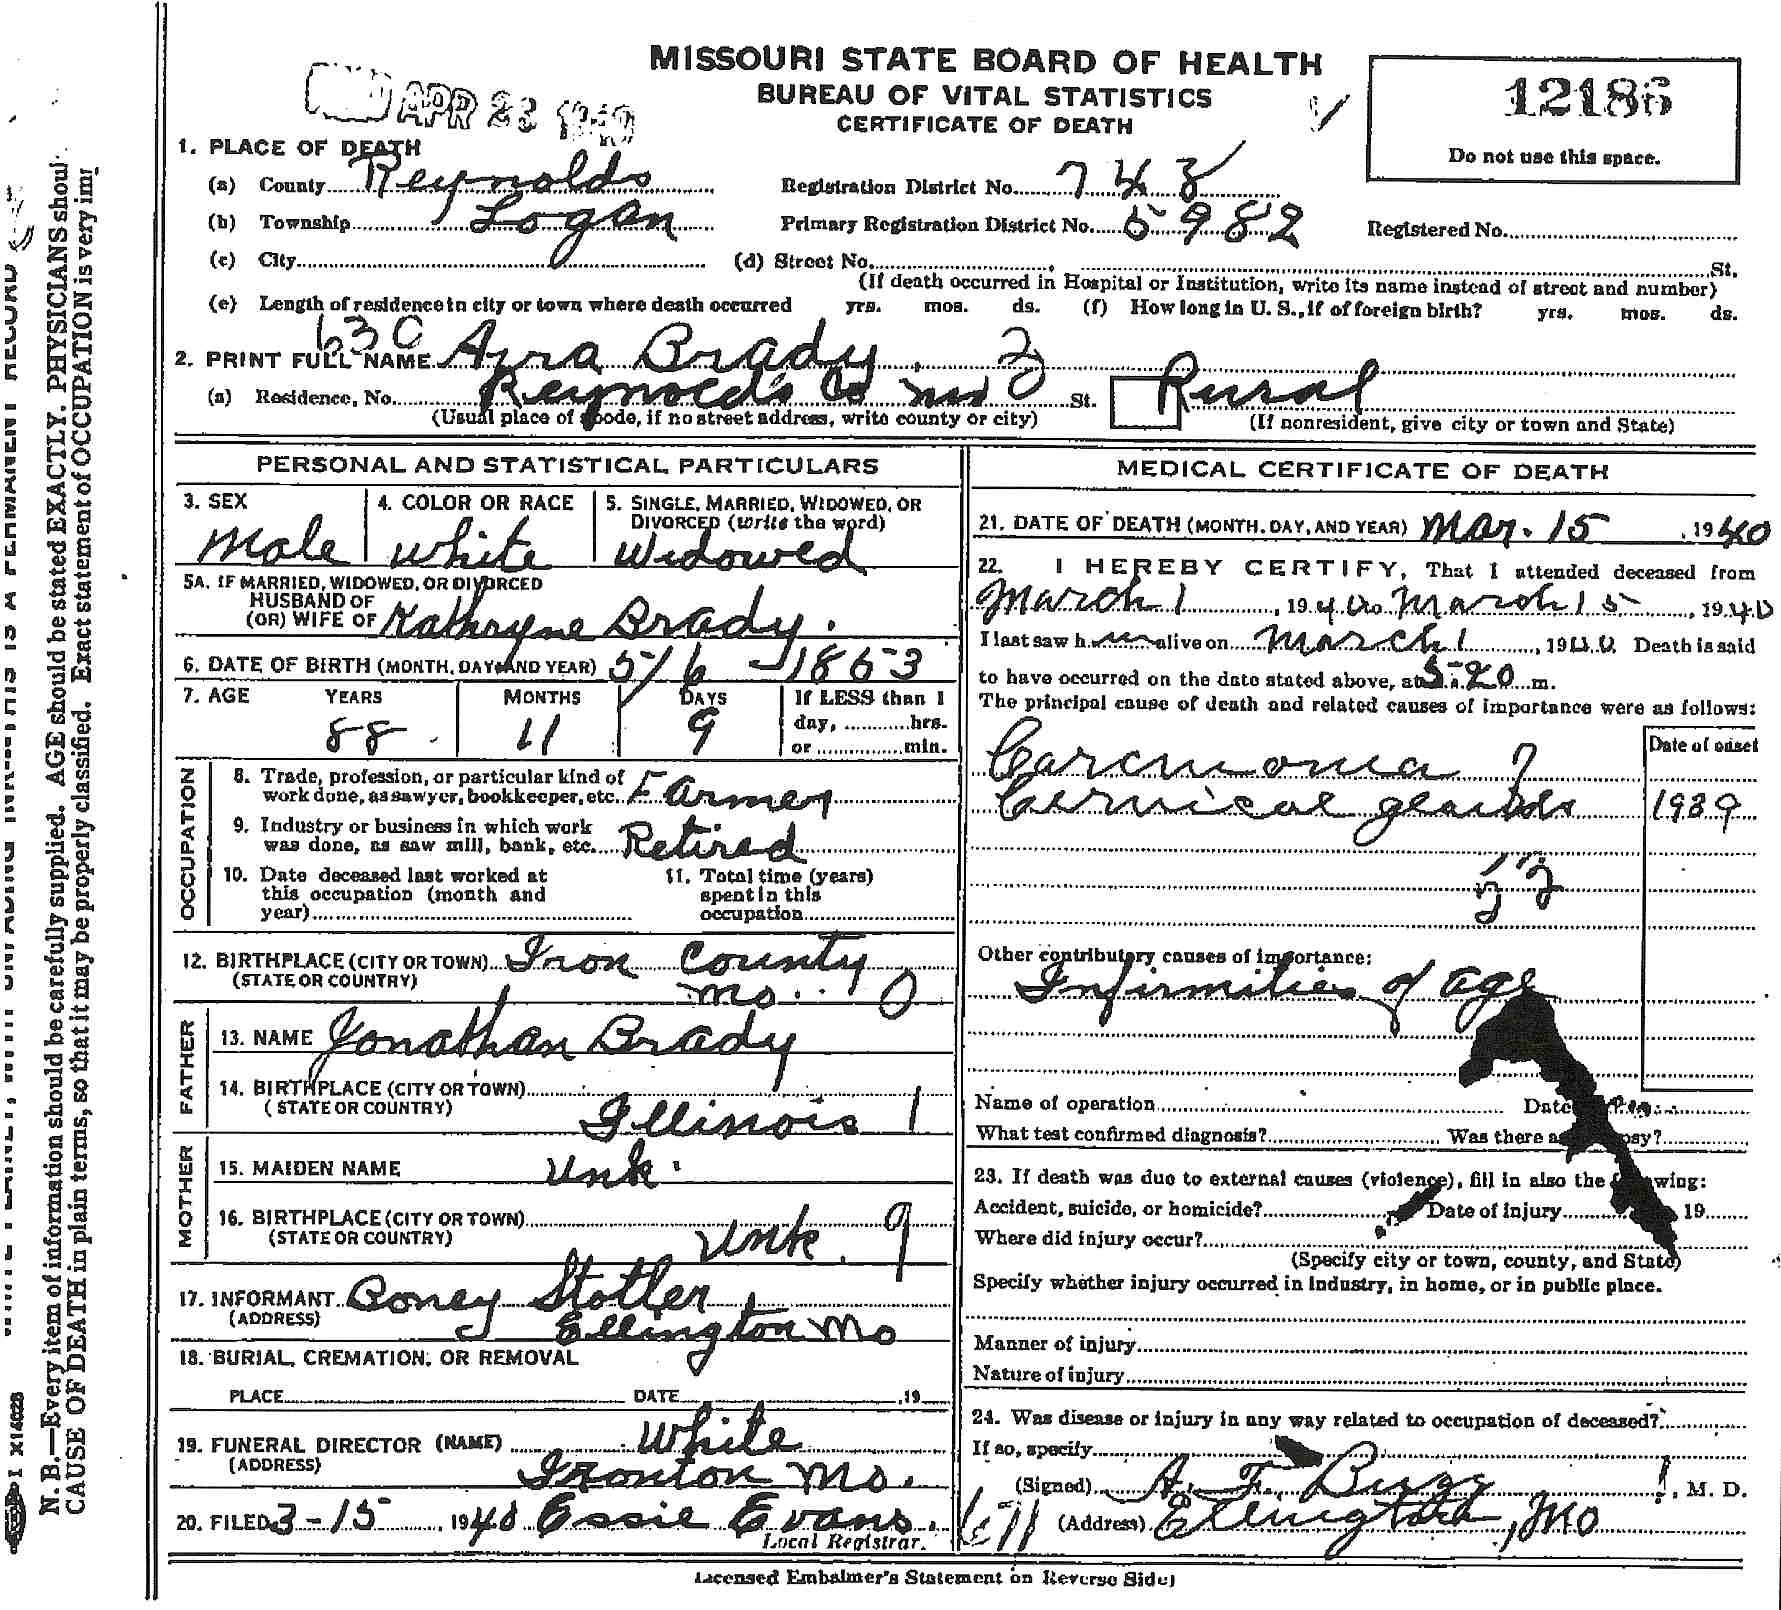 MISSOURI STATE BOARD OF HEALTH
BUREAU OF VITAL STATISTICS
CERTIFICATE OF DEATH
APR 23 1940
12186
Do not use this space.
1. PLACE OF DEATH
(a) County Reynolds Registration District No. 743
(b) Township Logan Primary Registration District No. 5982 Registered No.
(c) City (d) Street No. St.
(If death occurred in Hospital or Institution, write its name instead of street and number)
(e) Length of residence in city or town where death occurred yrs. mos. ds. (f) How long in U. S., if of foreign birth? yrs. mos. ds.
630
2. PRINT FULL NAME Azra Brady.
(a) Residence, No. Reynolds Co Mo St. Rural
(Usual place of abode, if no street address, write county or city) (If nonresident, give city or town and State)
PERSONAL AND STATISTICAL PARTICULARS
3. SEX Male
4. COLOR OR RACE White
5. SINGLE, MARRIED, WIDOWED, OR DIVORCED (write the word) Widowed
5A. IF MARRIED, WIDOWED, OR DIVORCED
HUSBAND OF
(OR) WIFE OF Kathryne Brady.
6. DATE OF BIRTH (MONTH, DAY AND YEAR) 5/6 - 1853
7. AGE YEARS MONTHS DAYS If LESS than 1
88 11 9 day, hrs.
or min.
OCCUPATION
8. Trade, profession, or particular kind of
work done, as sawyer, bookkeeper, etc. Farmer
9. Industry or business in which work
was done, as saw mill, bank, etc. Retired
10. Date deceased last worked at
this occupation (month and
year)
11. Total time (years)
spent in this
occupation
12. BIRTHPLACE (CITY OR TOWN) Iron County
(STATE OR COUNTRY) Mo. 0
FATHER
13. NAME Jonathan Brady
14. BIRTHPLACE (CITY OR TOWN)
(STATE OR COUNTRY) Illinois 1
MOTHER
15. MAIDEN NAME Unk.
16. BIRTHPLACE (CITY OR TOWN)
(STATE OR COUNTRY) Unk. 9
17. INFORMANT Boney Stotler
(ADDRESS) Ellington Mo
18. BURIAL, CREMATION, OR REMOVAL
PLACE DATE ,19
19. FUNERAL DIRECTOR (NAME) White
(ADDRESS) Ironton Mo.
20. FILED 3-15, 1940 Essie Evans.
Local Registrar.
MEDICAL CERTIFICATE OF DEATH
21. DATE OF DEATH (MONTH, DAY, AND YEAR) Mar. 15, 1940
22. I HEREBY CERTIFY, That I attended deceased from
March 1, 1940 to March 15, 1940
I last saw h im alive on March 1, 1940. Death is said
to have occurred on the date stated above, at 5-20 m.
The principal cause of death and related causes of importance were as follows:
Date of onset
Carcinoma ?
Cervical glands 1939
Other contributory causes of importance:
Infirmities of age
Name of operation Date
What test confirmed diagnosis? Was there
23. If death was due to external causes (violence), fill in also the following:
Accident, suicide, or homicide? Date of injury 19
Where did injury occur?
(Specify city or town, county, and State)
Specify whether injury occurred in industry, in home, or in public place.
Manner of injury
Nature of injury
24. Was disease or injury in any way related to occupation of deceased?
If so, specify
(Signed) A. F. Bugg, M. D.
(Address) Ellington, Mo
Licensed Embalmer's Statement on Reverse Side)
N. B.—Every item of information should be carefully supplied. AGE should be stated EXACTLY. PHYSICIANS shoul
CAUSE OF DEATH in plain terms, so that it may be properly classified. Exact statement of OCCUPATION is very im
X14028